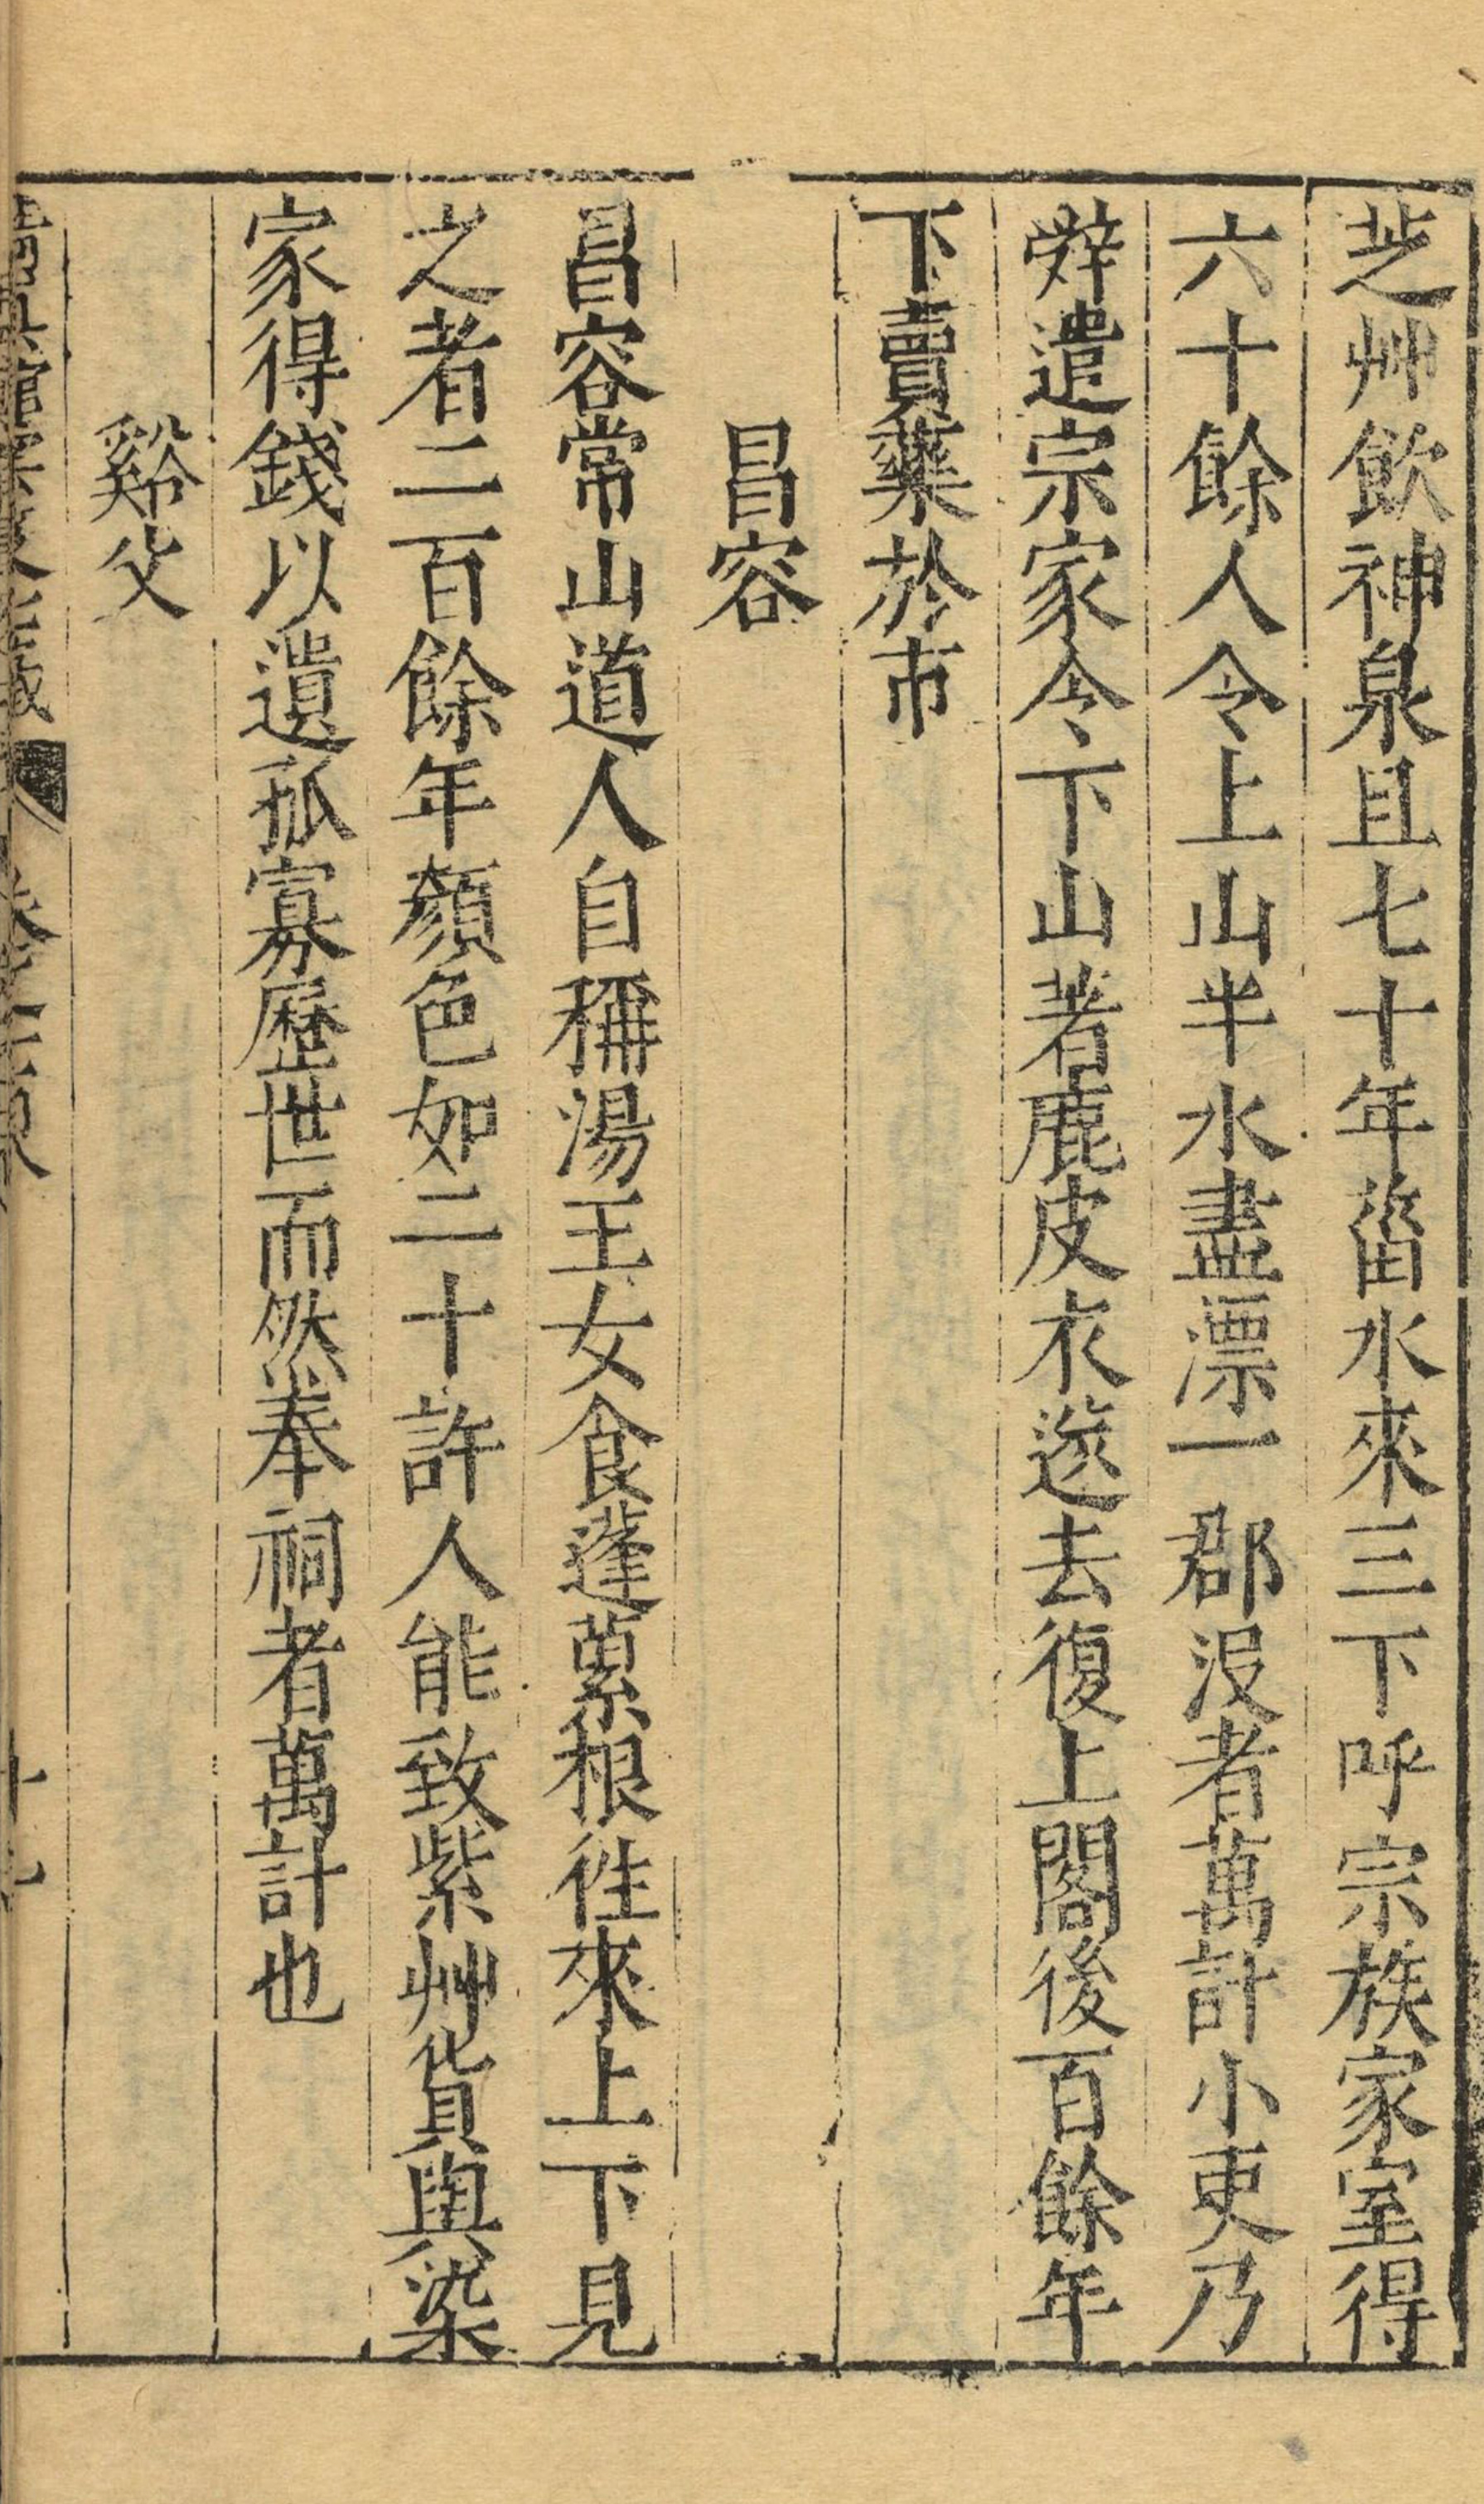 芝艸飲神泉且七十年菑水來三下呼宗族家室得
六十餘人令上山半水盡漂一郡沒者萬計小吏乃
辤遣宗家令下山著鹿皮衣遂去復上閣後百餘年
下賣藥於市
昌容
昌容常山道人自稱湯王女食蓬蔂根徃來上下見
之者二百餘年顏色如二十許人能致紫艸貨與染
家得錢以遺孤寡歷世而然奉祠者萬計也
谿父